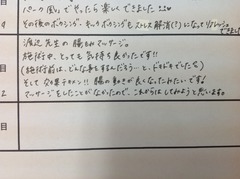 パーク風」でやったら楽しくできました
その後のボクシング、キックボクシングもストレス解消(?)になってリフレッシュできました
渡辺先生の腸もみマッサージ。
施術中、とっても気持ち良かったです!!
(施術前は、どんな事をするんだろう…と、ドキドキでしたな)
そして効果テキメン!! 腸の動きが良くなったみたいです!
マッサージをしたことがなかったので、これからはしてみようと思います。
日
日
目